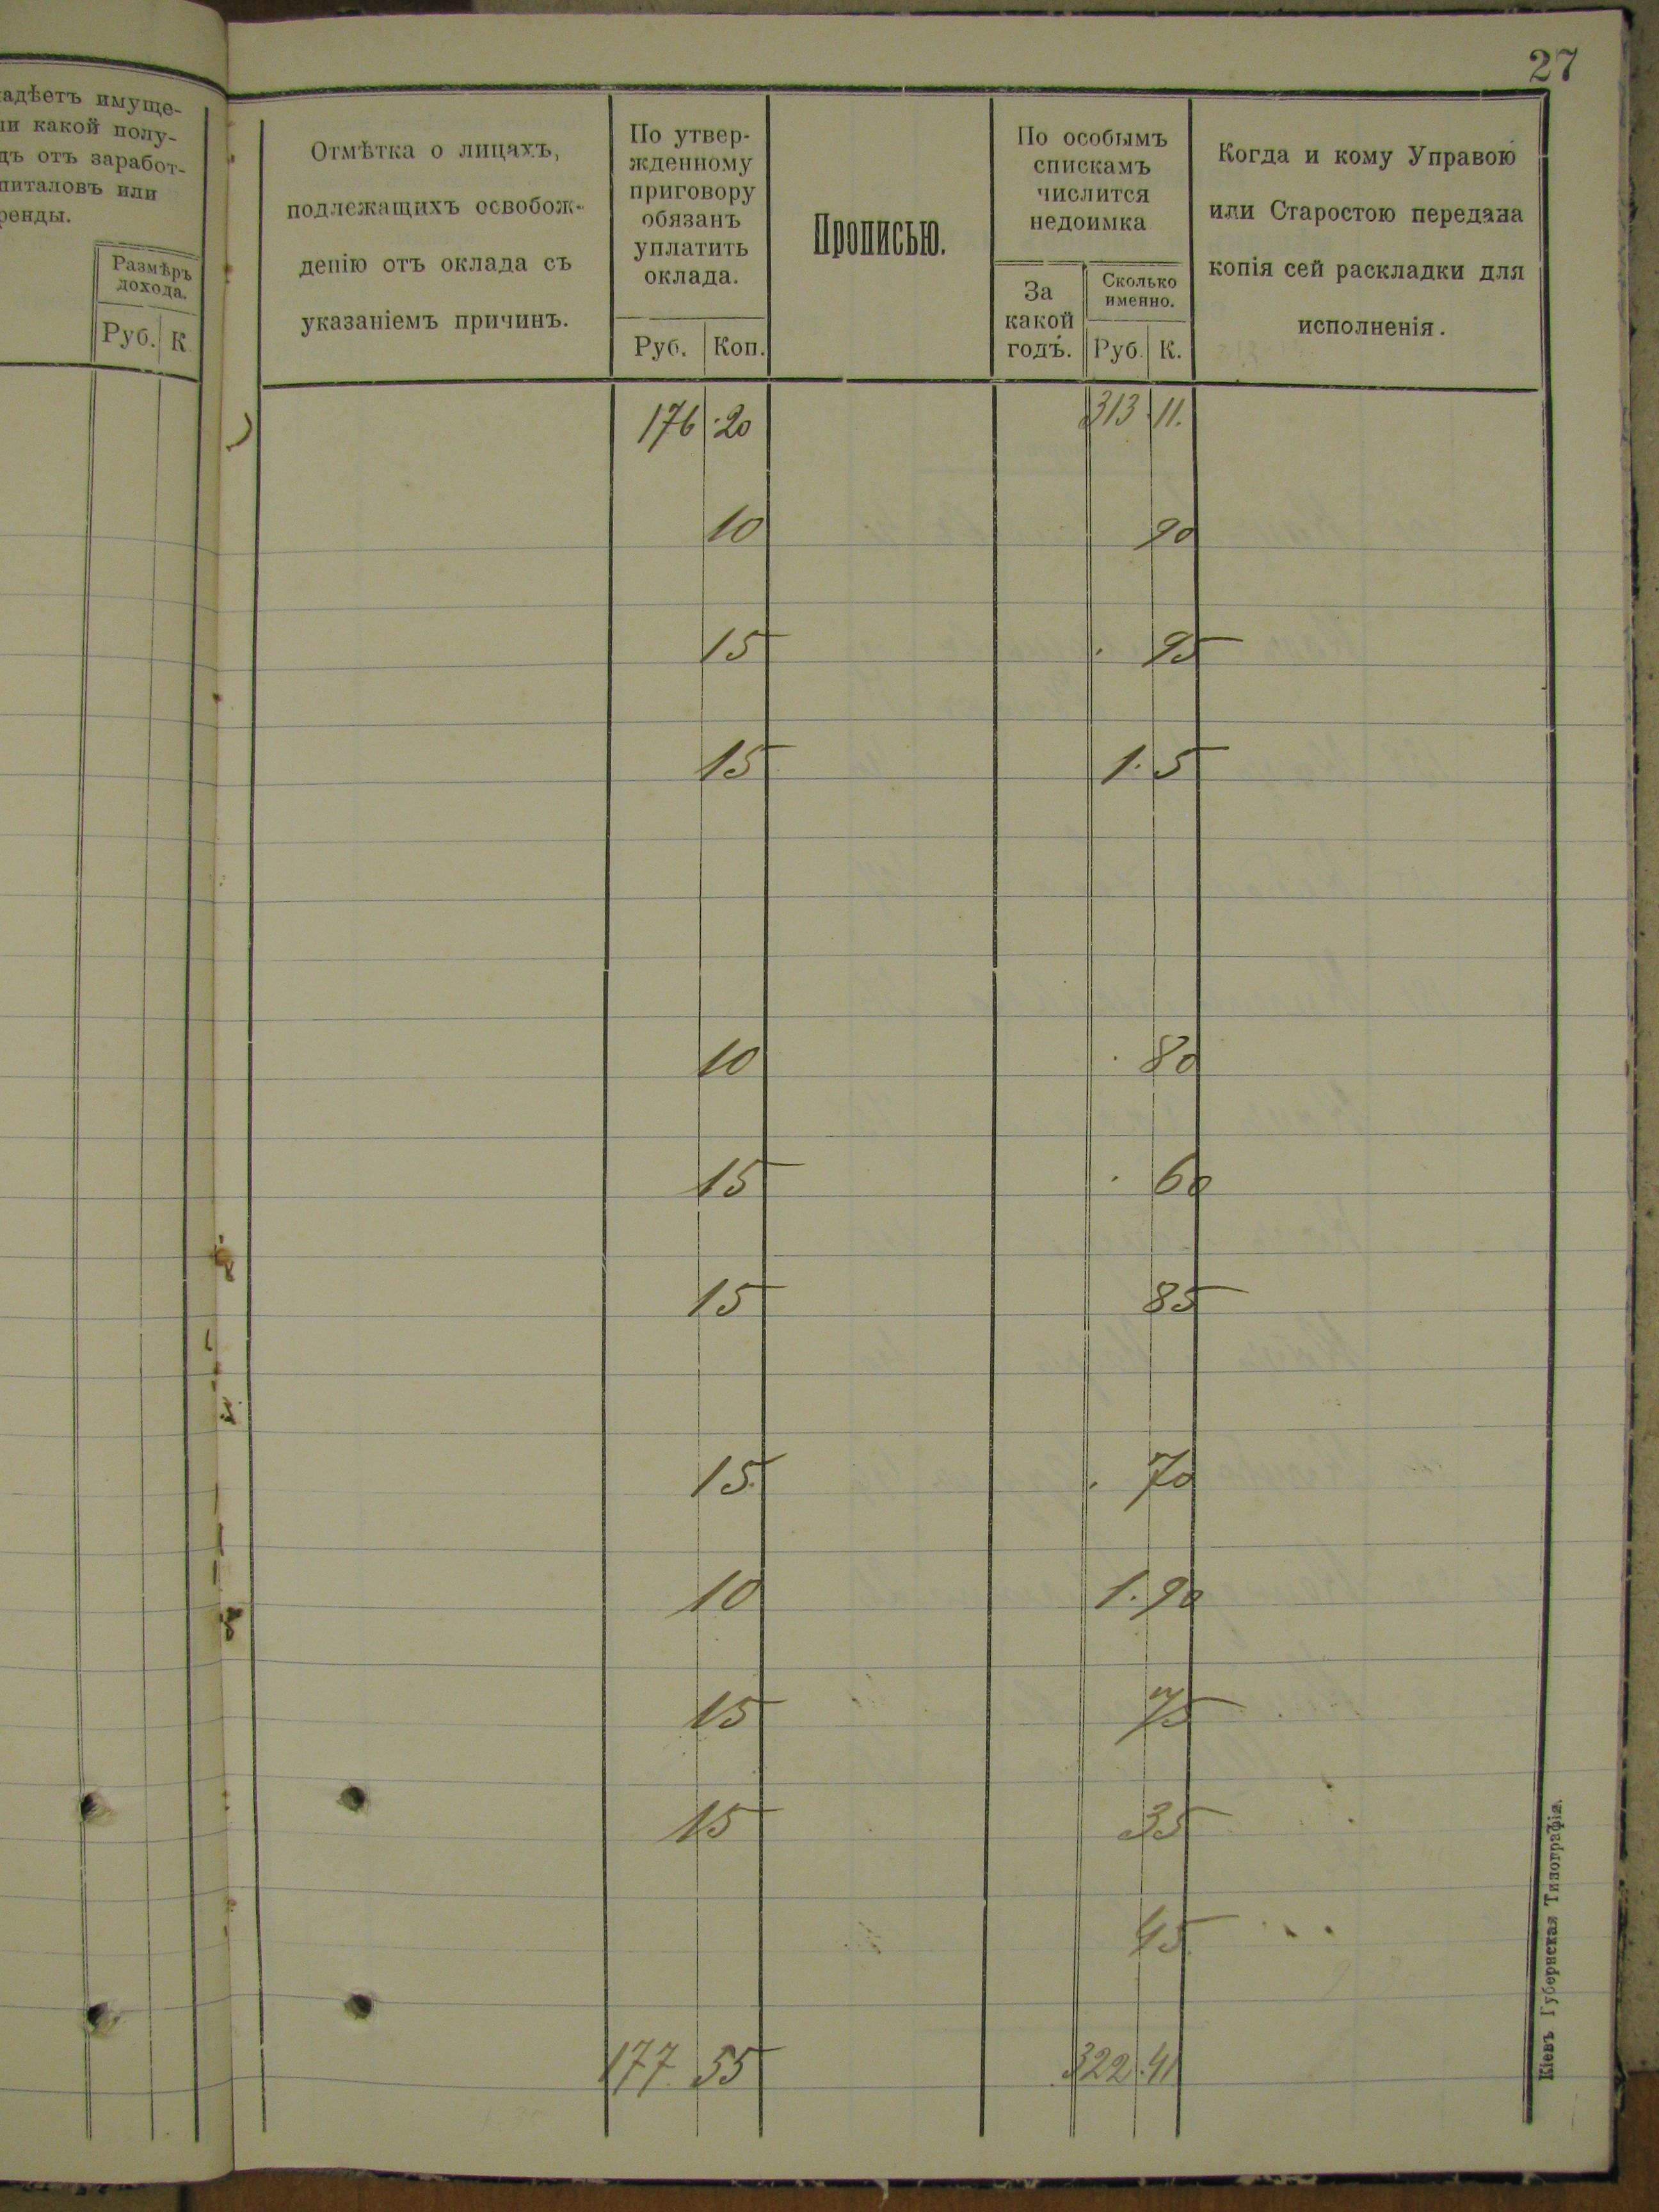 27
адѣетъ имуще-
и какой полу-
дъ отъ заработ-
питаловъ или
ренды.
Размѣръ
дохода.
Руб. К
Отмѣтка о лицахъ,
подлежащихъ освобож-
денію отъ оклада съ
указаніемъ причинъ.
По утвер-
жденному
приговору
обязанъ
уплатить
оклада.
Руб. Коп.
Прописью.
По особымъ
спискамъ
числится
недоимка
За
какой
годъ.
Сколько
именно.
Руб. К.
Когда и кому Управою
или Старостою передана
копія сей раскладки для
исполненія.
176 20 313 11.
10 90
15 95
15 1. 5
10 80
15 60
15 85
15 70
10 1. 90
15 75
15 35
45
177 55 322 41
Кіевъ Губернская Типографія.